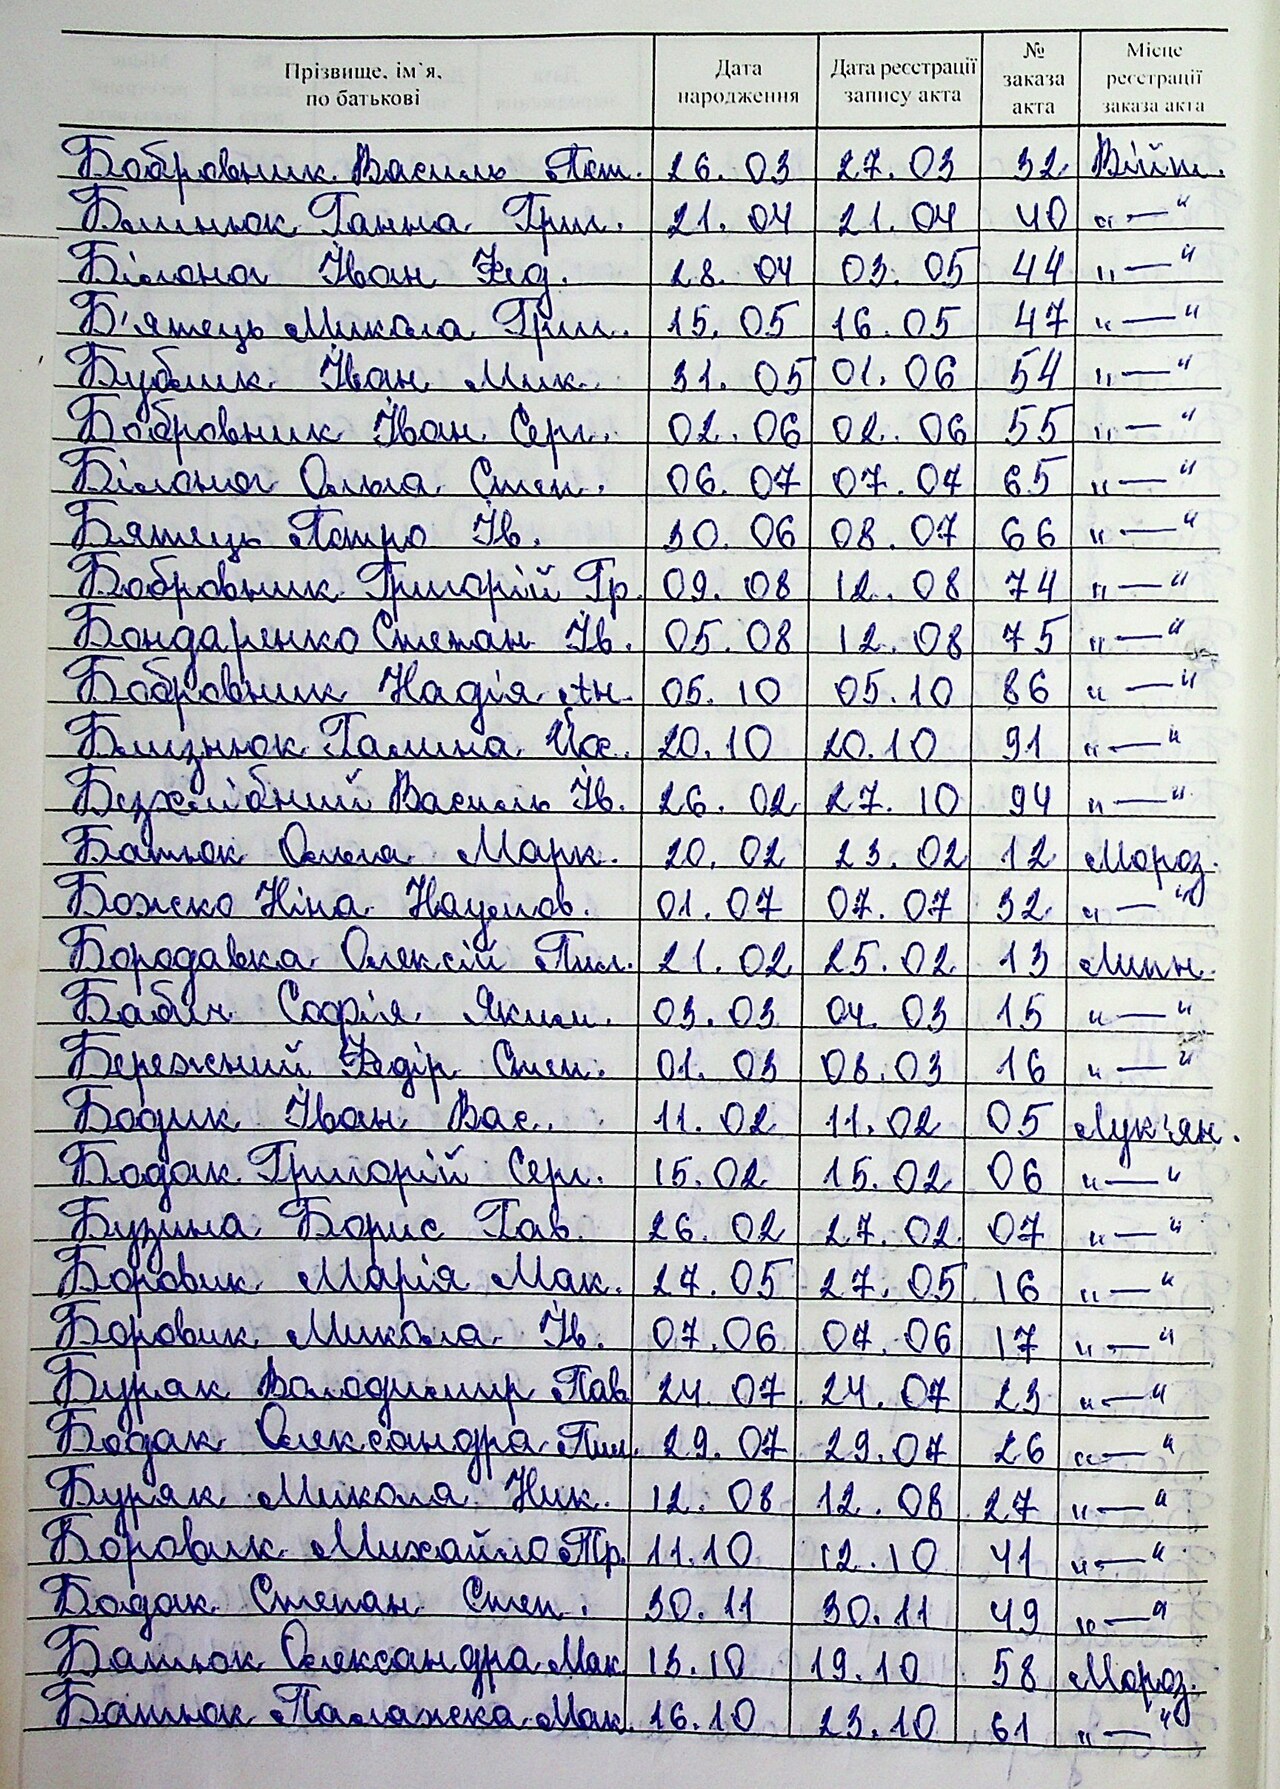 Прізвище, ім`я, по батькові Дата народження Дата реєстрації запису акта № заказа акта Місце реєстрації заказа акта
Бобровник Василь Пет. 26.03 27.03 32 Війт.
Блинюк Ганна Григ. 21.04 21.04 40 "—"
Білоног Іван Фед. 28.04 03.05 44 "—"
Б'ятець Микола Григ. 15.05 16.05 47 "—"
Бублик Іван Мик. 31.05 01.06 54 "—"
Бобровник Іван Серг. 02.06 02.06 55 "—"
Білоног Ольга Степ. 06.07 07.07 65 "—"
Бятець Петро Ів. 30.06 08.07 66 "—"
Бобровник Григорій Гр. 09.08 12.08 74 "—"
Бондаренко Степан Ів. 05.08 12.08 75 "—"
Бобровник Надія Ан. 05.10 05.10 86 "—"
Близнюк Галина Йос. 20.10 20.10 91 "—"
Безхлібний Василь Ів. 26.02 27.10 94 "—"
Батюк Ольга Марк. 20.02 23.02 12 Мороз.
Божко Ніна Наумов. 01.07 07.07 32 "—"
Бородавка Олексій Пил. 21.02 25.02 13 Липн.
Бабич Софія Яким. 03.03 04.03 15 "—"
Бережний Федір Степ. 01.03 08.03 16 "—"
Бодик Іван Вас. 11.02 11.02 05 Лук'ян.
Бодак Григорій Серг. 15.02 15.02 06 "—"
Бузина Борис Гав. 26.02 27.02 07 "—"
Боровик Марія Мак. 27.05 27.05 16 "—"
Боровик Микола Ів. 07.06 07.06 17 "—"
Буряк Володимир Пав. 24.07 24.07 23 "—"
Бодак Олександра Пил. 29.07 29.07 26 "—"
Буряк Микола Ник. 12.08 12.08 27 "—"
Боровик Михайло Тр. 11.10 12.10 41 "—"
Бодак Степан Степ. 30.11 30.11 49 "—"
Батюк Олександра Мак. 13.10 19.10 58 Мороз.
Батюк Палажка Мак. 16.10 23.10 61 "—"